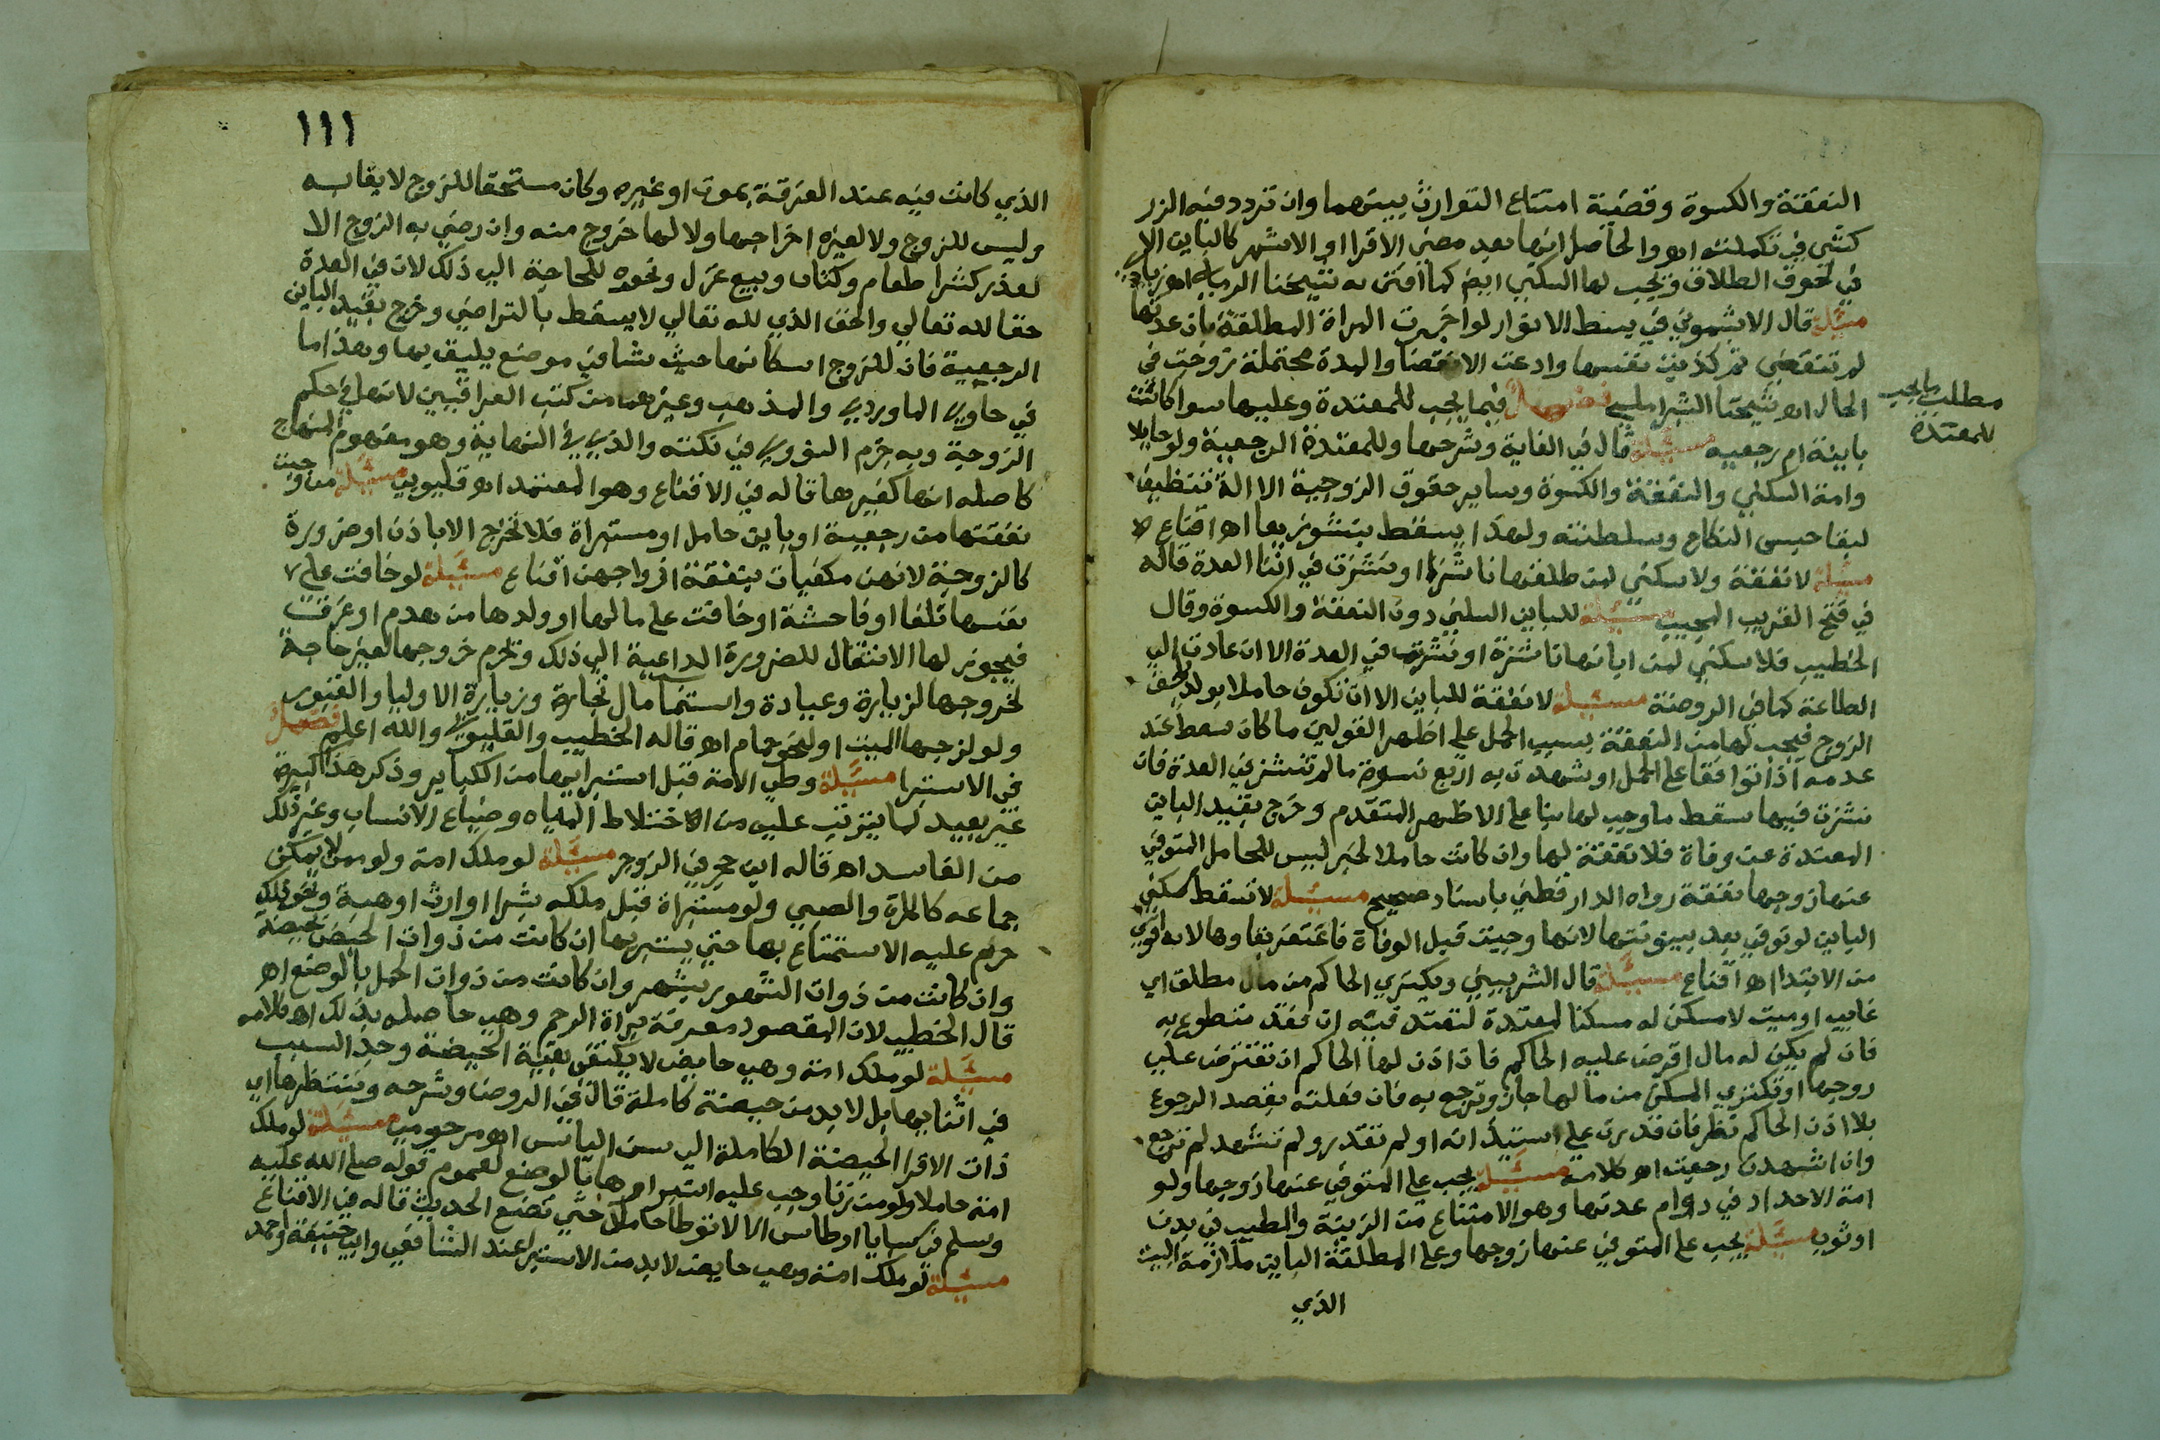 النفقة والكسوة وقضية امتناع التوارث بينهما وان تردد فيه الزر
كشي في تكملته اه والحاصل انها بعد مضي الاقرا او الاشهر كالباين الا
في لحوق الطلاق ويجب لها السكني ايضا كما افتى به شيخنا الرملي اه زيادي
مسئلة قال الاشموني في بسط الانوار لو اخبرت المراة المطلقة بان عدتها
لم تنقضي ثم كذبت نفسها وادعت الانقضا والمدة محتملة تزوجت في
الحال اه شيخنا الشبراملسي فصل فيما يجب للمعتدة وعليها سوا كانت
مطلب ما يجب
للمعتدة
باينة ام رجعيه مسئلة قال في الغاية وشرحها وللمعتدة الرجعية ولو حايلا
وامة السكني والنفقة والكسوة وساير حقوق الزوجية الا الة تنظيف
لبقا حبس النكاح وسلطنته ولهذا يسقط بنشوزها اه اقناع
مسئلة لا نفقة ولا سكني لمن طلقها ناشزا او نشزت في اثنا العدة قاله
في فتح القريب المجيب مسئلة للباين السكني دون النفقة والكسوة وقال
الخطيب فلا سكني لمن ابانها ناشزة او نشزت في العدة الا ان عادت الي
الطاعة كما في الروضة مسئلة لا نفقة للباين الا ان تكون حاملا بولد يلحق
الزوج فيجب لها من النفقة بسبب الحمل علي اظهر القولين ما كان سقط عند
عدمه اذا توافقا علي الحمل او شهدت به اربع نسوة ما لم تنشز في العدة فان
نشزت فيها سقط ما وجب لها بنا علي الاظهر المتقدم وخرج بقيد الباين
المعتدة عن وفاة فلا نفقة لها وان كانت حاملا لخبر ليس للحامل المتوفي
عنها زوجها نفقة رواه الدارقطني باسناد صحيح مسئلة لا تسقط سكني
الباين لو توفي بعد بينونتها لانها وجبت قبل الوفاة فاغتفر بقاوها لانه اقوي
من الابتدا اه اقناع مسئلة قال الشربيني ويكتري الحاكم من مال مطلق اي
غايب او ميت لا مسكن له مسكنا لمعتدة لتعتد فيه ان فقد متطوع به
فان لم يكن له مال اقرض عليه الحاكم فان اذن لها الحاكم ان تقترض علي
زوجها او تكتري المسكن من مالها جاز وترجع به فان فعلته بقصد الرجوع
بلا اذن الحاكم نظر فان قدرت علي استيذانه او لم تقدر ولم تشهد لم ترجع
وان اشهدت رجعت اه كلامه مسئلة يجب علي المتوفي عنها زوجها ولو
امة الاحداد في دوام عدتها وهو الامتناع من الزينة والطيب في بدن
او ثوب مسئلة يجب علي المتوفي عنها زوجها وعلي المطلقة الباين ملازمة البيت
الذي
١١١
الذي كانت فيه عند الفرقة بموت او غيره وكان مستحقا للزوج لايقا به
وليس للزوج ولا لغيره اخراجها ولا لها خروج منه وان رضي به الزوج الا
لعذر كشرا طعام وكتان وبيع غزل ونحوه للحاجة الي ذلك لان في العدة
حقا لله تعالي والحق الذي لله تعالي لا يسقط بالتراضي وخرج بقيد الباين
الرجعية فان للزوج اسكانها حيث شا في موضع يليق بها وهذا ما
في حاوي الماوردي والمذهب وغيرهما من كتب العراقيين لانها في حكم
الزوجة وبه جزم النووي في نكته والذي في النهاية وهو مفهوم المنهاج
كاصله انها كغيرها قاله في الاقناع وهو المعتمد اه قليوبي مسئلة من وجبت
نفقتها من رجعية او باين حامل او مستبراة فلا تخرج الا باذن او ضرورة
كالزوجة لانهن مكفيات بنفقة ازواجهن اقناع مسئلة لو خافت علي
نفسها تلفا او فاحشة او خافت علي مالها او ولدها من هدم او غرق
فيجوز لها الانتقال للضرورة الداعية الي ذلك ويحرم خروجها لغير حاجة
كخروجها لزيارة وعيادة واستنما مال تجارة وزيارة الاوليا والقبور
ولو لزوجها الميت او لنحو حمام اه قاله الخطيب والقليوبي والله اعلم فصل
في الاستبرا مسئلة وطي الامة قبل استبرايها من الكباير وذكر هذا كبيرة
غير بعيد لما يترتب عليه من اختلاط المياه وضياع الانساب وغير ذلك
من المفاسد اه قاله ابن حجر في الزوجر مسئلة لو ملك امة ولو ممن لا يمكن
جماعه كالمراة والصبي ولو مستبراة قبل ملكه بشرا او ارث او هبة ونحو ذلك
حرم عليه الاستمتاع بها حتي يستبريها ان كانت من ذوات الحيض بحيضة
وان كانت من ذوات الشهور بشهر وان كانت من ذوات الحمل بالوضع اه
قال الخطيب لان المقصود معرفة براة الرحم وهي حاصلة بذلك اه كلامه
مسئلة لو ملك امة وهي حايض لا يكتفي بقية الحيضة وحد السبب
في اثنايها بل لا بد من حيضة كاملة قال في الروض وشرحه وتنتظرها اي
ذات الاقرا الحيضة الكاملة الي سن الياس اه مرحومي مسئلة لو ملك
امة حاملا ولو من زنا وجب عليه استبراوها بالوضع لعموم قوله صلي الله عليه
وسلم في سبايا اوطاس الا لا توطا حامل حتي تضع الحديث قاله في الاقناع
مسئلة لو ملك امة وهي حايض لا بد من الاستبرا عند الشافعي وابي حنيفة واحمد